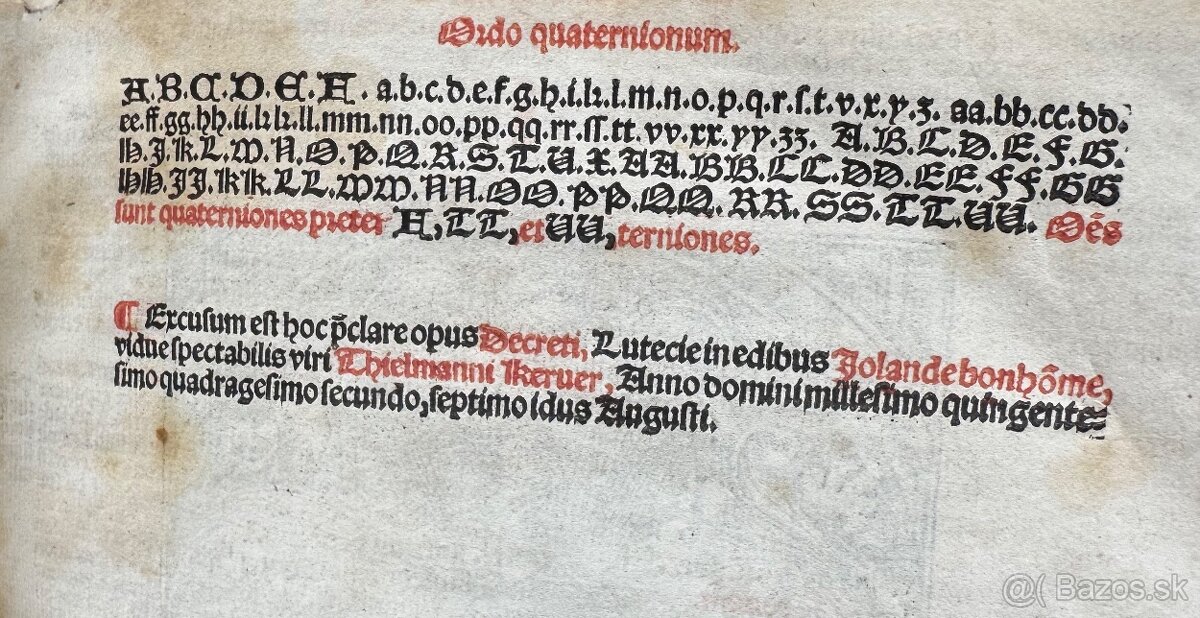 Ordo quaternionum.
A.B.C.D.E.F. a.b.c.d.e.f.g.h.i.k.l.m.n.o.p.q.r.s.t.v.x.y.z. aa.bb.cc.dd.
ee.ff.gg.hh.ii.kk.ll.mm.nn.oo.pp.qq.rr.ſſ.tt.vv.xx.yy.zz. A.B.C.D.E.F.G.
H.J.K.L.M.N.O.P.Q.R.S.T.U.X.AA.BB.CC.DD.EE.FF.GG
HH.JJ.KK.LL.MM.NN.OO.PP.QQ.RR.SS.TT.UU. Oẽs
sunt quaterniones preter A, TT, et UU, terniones.
¶ Excusum est hoc p̄clare opus Decreti, Lutecie in edibus Jolande bonhõme,
vidue spectabilis viri Thielmanni Keruer, Anno domini millesimo quingente=
simo quadragesimo secundo, septimo idus Augusti.
@( Bazos.sk